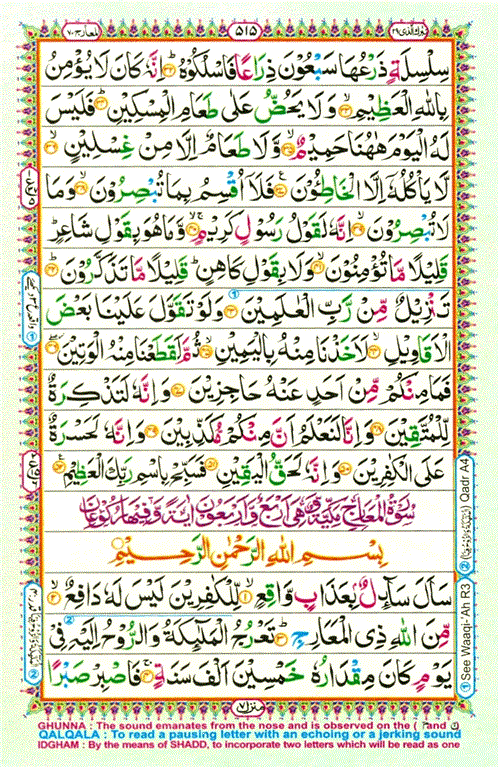 تبٰرك الذی ٢٩
٥١٥
المعارج ٧٠
سِلْسِلَةٍ ذَرْعُهَا سَبْعُوْنَ ذِرَاعًا فَاسْلُكُوْهُ ؕ﴿۳۲﴾ اِنَّهٗ كَانَ لَا يُؤْمِنُ
بِاللّٰهِ الْعَظِيْمِ ۙ﴿۳۳﴾ وَلَا يَحُضُّ عَلٰى طَعَامِ الْمِسْكِيْنِ ؕ﴿۳۴﴾ فَلَيْسَ
لَهُ الْيَوْمَ هٰهُنَا حَمِيْمٌ ۙ﴿۳۵﴾ وَّلَا طَعَامٌ اِلَّا مِنْ غِسْلِيْنٍ ۙ﴿۳۶﴾
لَّا يَاْكُلُهٗۤ اِلَّا الْخَاطِـُٔوْنَ ﴿۳۷﴾ فَلَاۤ اُقْسِمُ بِمَا تُبْصِرُوْنَ ۙ﴿۳۸﴾ وَمَا
لَا تُبْصِرُوْنَ ۙ﴿۳۹﴾ اِنَّهٗ لَقَوْلُ رَسُوْلٍ كَرِيْمٍ ۚۙ﴿۴۰﴾ وَّمَا هُوَ بِقَوْلِ شَاعِرٍ ؕ
قَلِيْلًا مَّا تُؤْمِنُوْنَ ۙ﴿۴۱﴾ وَلَا بِقَوْلِ كَاهِنٍ ؕ قَلِيْلًا مَّا تَذَكَّرُوْنَ ؕ﴿۴۲﴾
تَنْزِيْلٌ مِّنْ رَّبِّ الْعٰلَمِيْنَ ﴿۴۳﴾ وَلَوْ تَقَوَّلَ عَلَيْنَا بَعْضَ
الْاَقَاوِيْلِ ۙ﴿۴۴﴾ لَاَخَذْنَا مِنْهُ بِالْيَمِيْنِ ۙ﴿۴۵﴾ ثُمَّ لَقَطَعْنَا مِنْهُ الْوَتِيْنَ ؗۖ﴿۴۶﴾
فَمَا مِنْكُمْ مِّنْ اَحَدٍ عَنْهُ حَاجِزِيْنَ ﴿۴۷﴾ وَاِنَّهٗ لَتَذْكِرَةٌ
لِّلْمُتَّقِيْنَ ﴿۴۸﴾ وَاِنَّا لَنَعْلَمُ اَنَّ مِنْكُمْ مُّكَذِّبِيْنَ ﴿۴۹﴾ وَاِنَّهٗ لَحَسْرَةٌ
عَلَى الْكٰفِرِيْنَ ﴿۵۰﴾ وَاِنَّهٗ لَحَقُّ الْيَقِيْنِ ﴿۵۱﴾ فَسَبِّحْ بِاسْمِ رَبِّكَ الْعَظِيْمِ ﴿۵۲﴾
سُوْرَةُ الْمَعَارِجِ مَكِّيَّةٌ وَّهِيَ اَرْبَعٌ وَّاَرْبَعُوْنَ اٰيَةً وَّفِيْهَا رُكُوْعَانِ
بِسْمِ اللّٰهِ الرَّحْمٰنِ الرَّحِيْمِ
سَاَلَ سَآئِلٌۢ بِعَذَابٍ وَّاقِعٍ ۙ﴿۱﴾ لِّلْكٰفِرِيْنَ لَيْسَ لَهٗ دَافِعٌ ۙ﴿۲﴾
مِّنَ اللّٰهِ ذِى الْمَعَارِجِ ؕ﴿۳﴾ تَعْرُجُ الْمَلٰٓئِكَةُ وَالرُّوْحُ اِلَيْهِ فِىْ
يَوْمٍ كَانَ مِقْدَارُهٗ خَمْسِيْنَ اَلْفَ سَنَةٍ ۚ﴿۴﴾ فَاصْبِرْ صَبْرًا
منزل ٧
① See Waaqi-Ah R3
② Qadr A4
GHUNNA : The sound emanates from the nose and is observed on the ( م and ن
QALQALA : To read a pausing letter with an echoing or a jerking sound
IDGHAM : By the means of SHADD, to incorporate two letters which will be read as one